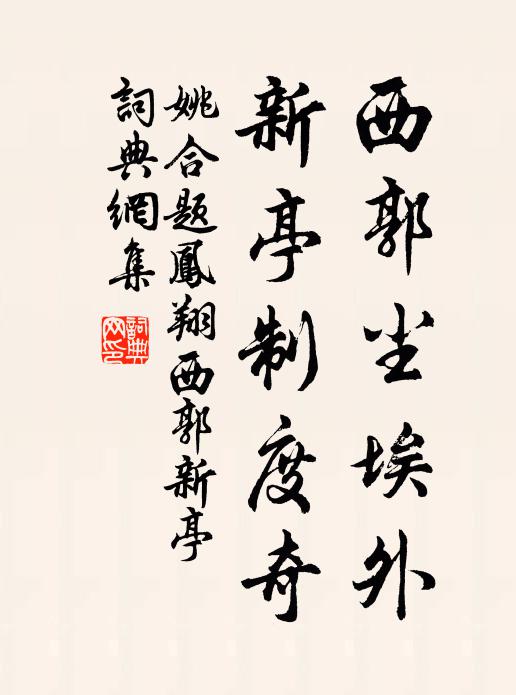 西郭尘埃外
新亭制度奇
姚合题鳳翔西郭新亭
詞典網集
詞典
网印